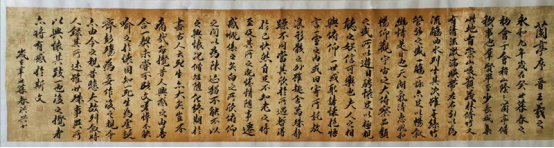 蘭亭序 晉王羲之
永和九年歲在癸丑暮春之
初會于會稽山陰之蘭亭脩
禊事也羣賢畢至少長咸集
此地有崇山峻領茂林脩竹又
有清流激湍映帶左右引以為
流觴曲水列坐其次雖無絲竹
管絃之盛一觴一詠亦足以暢敘
幽情是日也天朗氣清惠風和
暢仰觀宇宙之大俯察品類
之盛所以遊目騁懷足以極視
聽之娛信可樂也夫人之相
與俯仰一世或取諸懷抱悟
言一室之內或因寄所託放
浪形骸之外雖趣舍萬殊靜
躁不同當其欣於所遇暫得
於己快然自足不知老之將
至及其所之既惓情隨事遷
感慨係之矣向之所欣俛仰
之間以為陳迹猶不能不以
之興懷況脩短隨化終期於
盡古人云死生亦大矣豈不
痛哉每攬昔人興感之由若
合一契未嘗不臨文嗟悼不能
喻之於懷固知一死生為虛誕
齊彭殤為妄作後之視今
亦由今之視昔悲夫故列敘時
人錄其所述雖世殊事異所
以興懷其致一也後之攬者
亦將有感於斯文